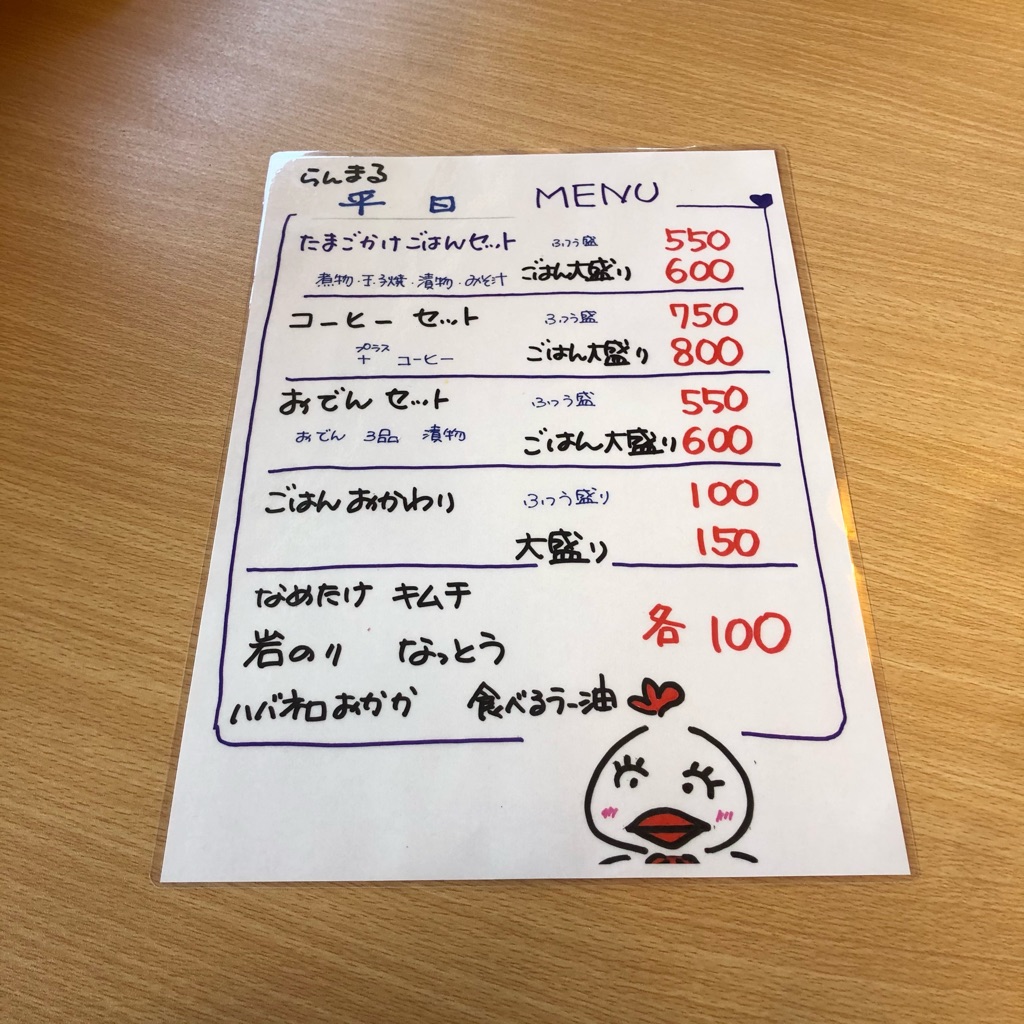 らんまる
平日 MENU
たまごかけごはんセット ふつう盛 550
煮物・玉子焼・漬物・みそ汁 ごはん大盛り 600
コーヒー セット ふつう盛 750
プラス
+ コーヒー ごはん大盛り 800
おでん セット ふつう盛 550
おでん 3品 漬物 ごはん大盛り 600
ごはんおかわり ふつう盛り 100
大盛り 150
なめたけ キムチ
各 100
岩のり なっとう
ハバネロおかか 食べるラー油